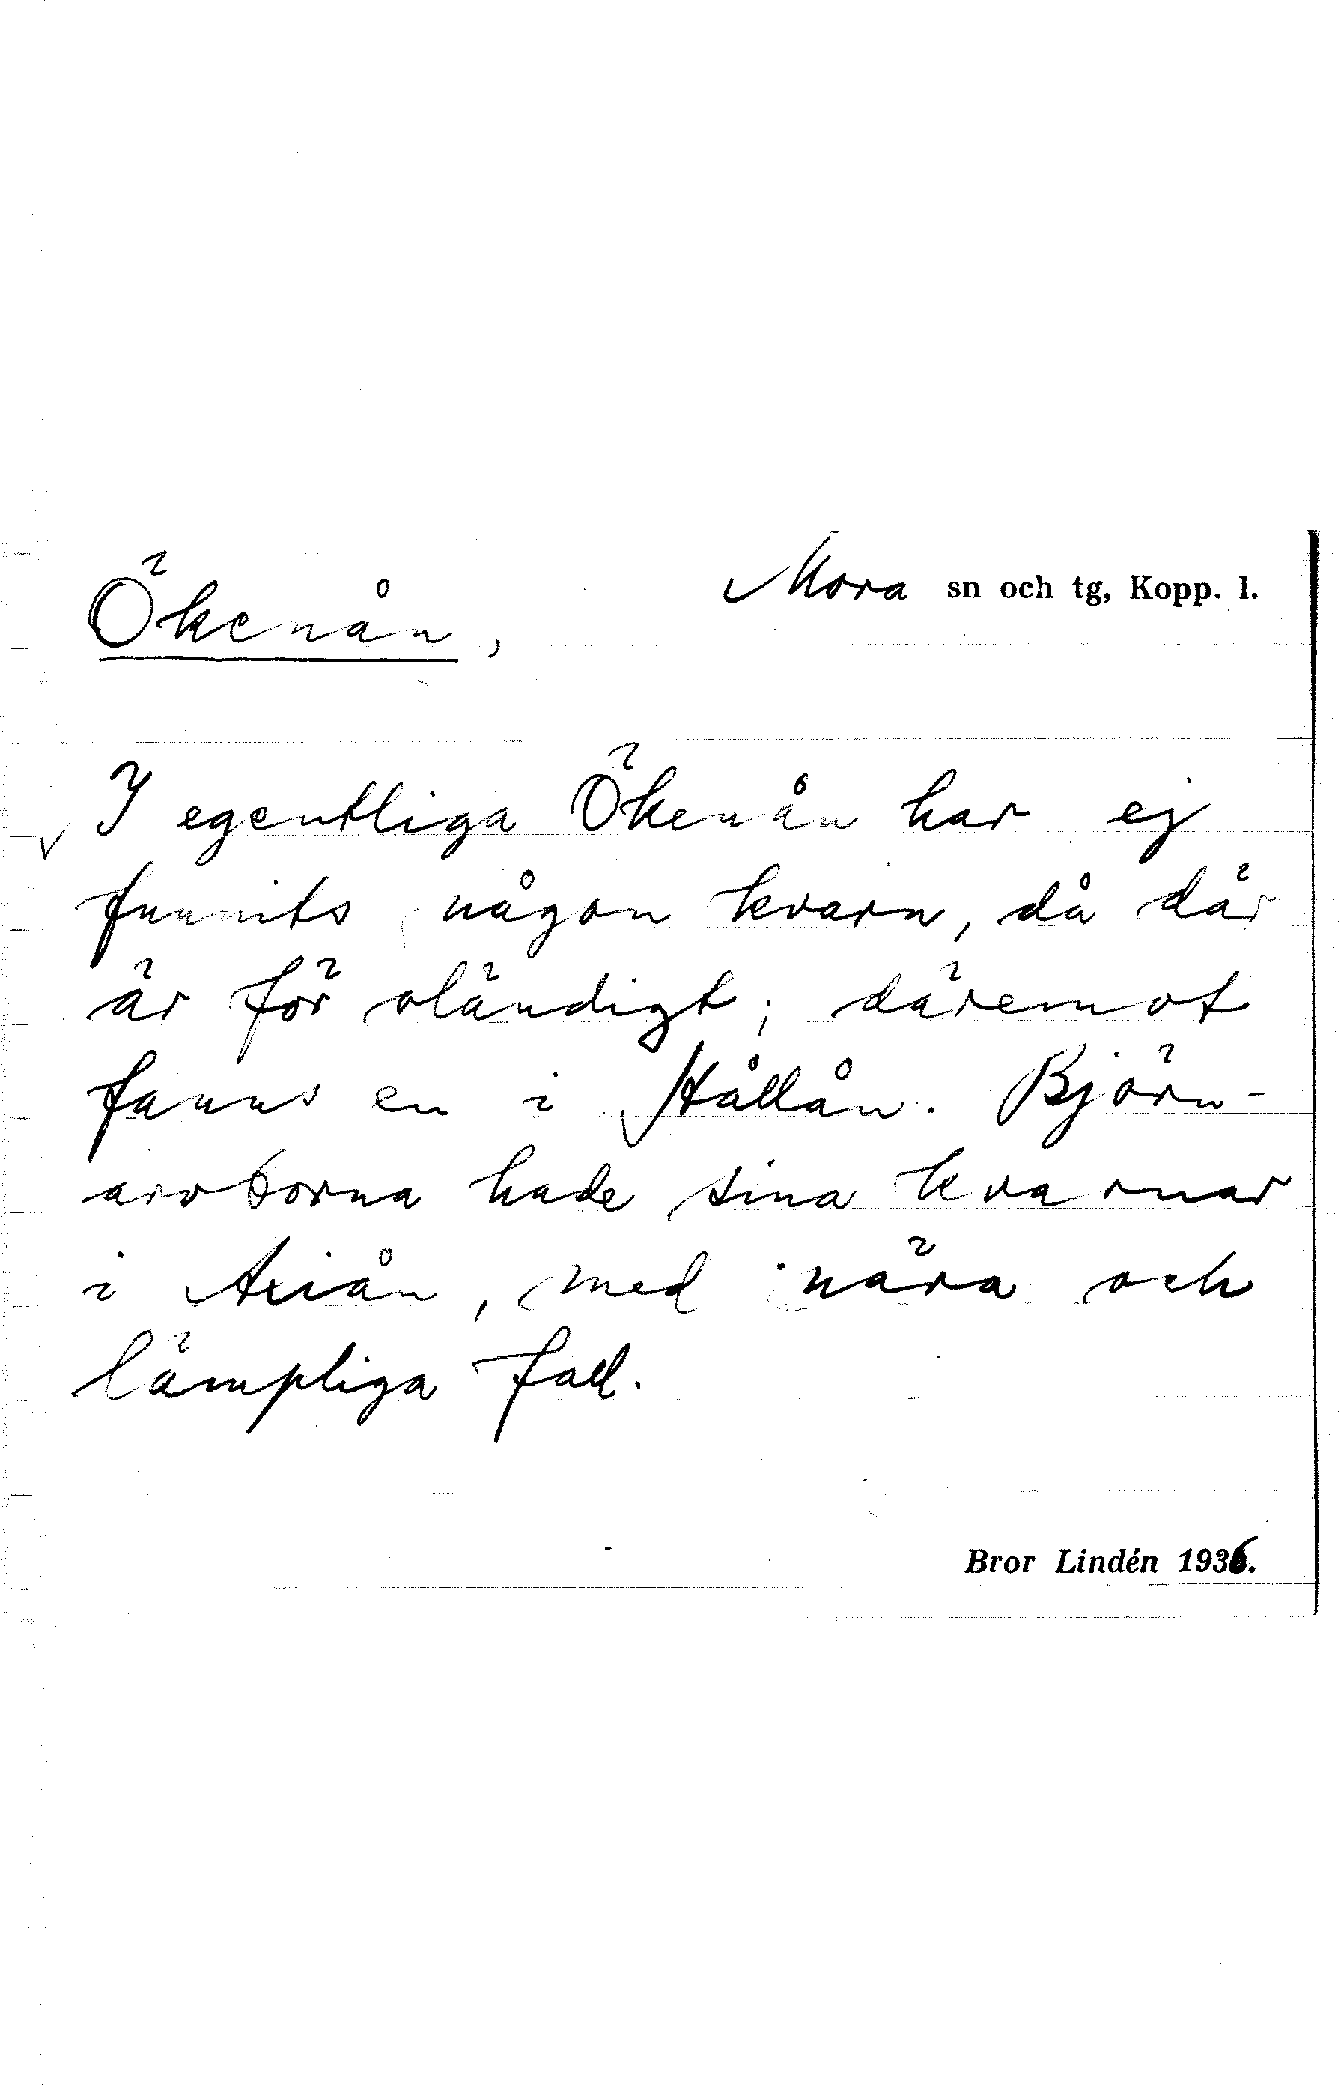 Ökenån,
Mora sn och tg, Kopp. l.
I egentliga Ökenån har ej
funnits någon kvarn, då där
är för oländigt; däremot
fanns en i Hållån. Björn-
arvborna hade sina kvarnar
i Axiån, med nära och
lämpliga fall.
Bror Lindén 1936.